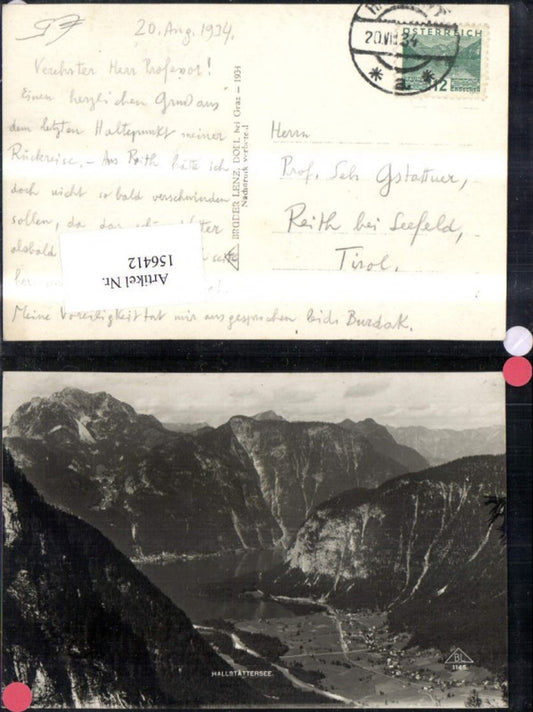 20. Aug. 1934.
Verehrter Herr Professor!
Einen herzlichen Gruß aus
dem letzten Haltepunkt meiner
Rückreise. – Aus Reith hätte ich
doch nicht so bald verschwinden
sollen, da das
alsbald
Meine Voreiligkeit tut mir ausgesprochen leid.
Artikel Nr.
156412
BRÜDER LENZ, DOLL bei Graz — 1934
Nachdruck verboten!
20.VIII.34
a
ÖSTERREICH
12
Herrn
Prof. Seb. Gstattner,
Reith bei Seefeld,
Tirol.
HALLSTÄTTERSEE.
BL
1145.